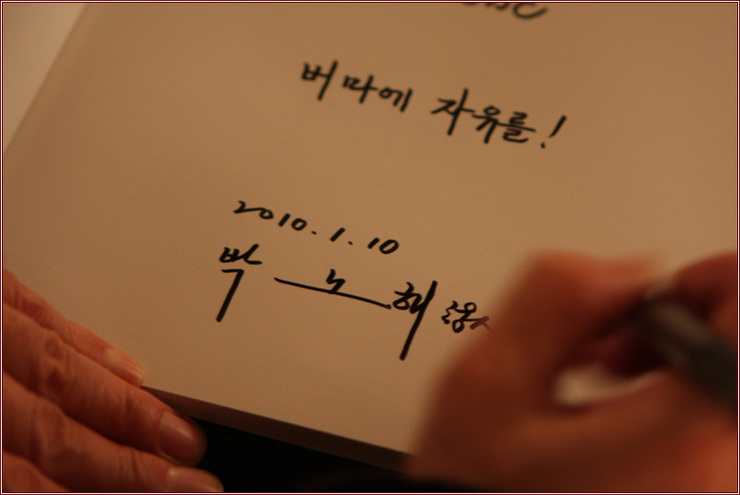 버마에 자유를!
2010.1.10
박노해